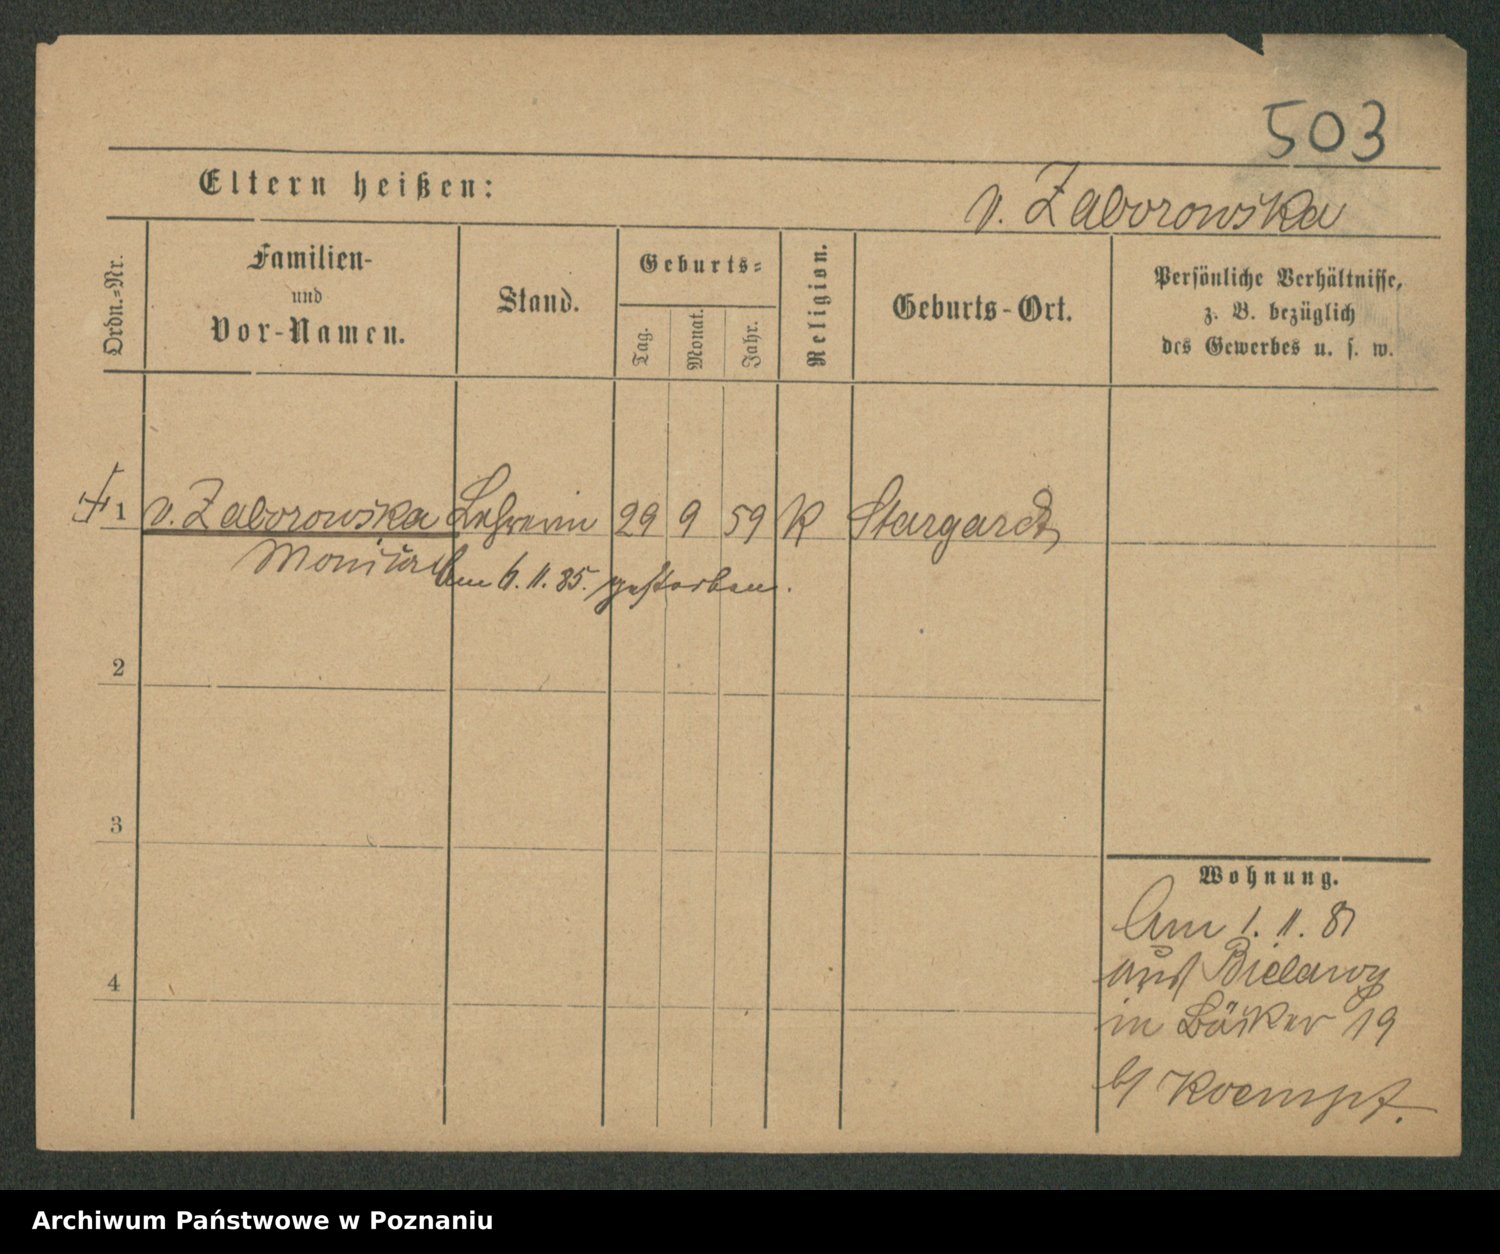 503
Eltern heißen:
v. Zaborowska
Ordn.=Nr.
Familien-
und
Vor-Namen.
Stand.
Geburts=
Tag.
Monat.
Jahr.
Religion.
Geburts-Ort.
Persönliche Verhältnisse,
z. B. bezüglich
des Gewerbes u. s. w.
1 v. Zaborowska Lehrerin 29 9 59 K Stargardt
Monica
Am 6. 11. 85. gestorben.
2
3
4
Wohnung.
Am 1. 11. 81
aus Bielawy
in Bäcker 19
b/